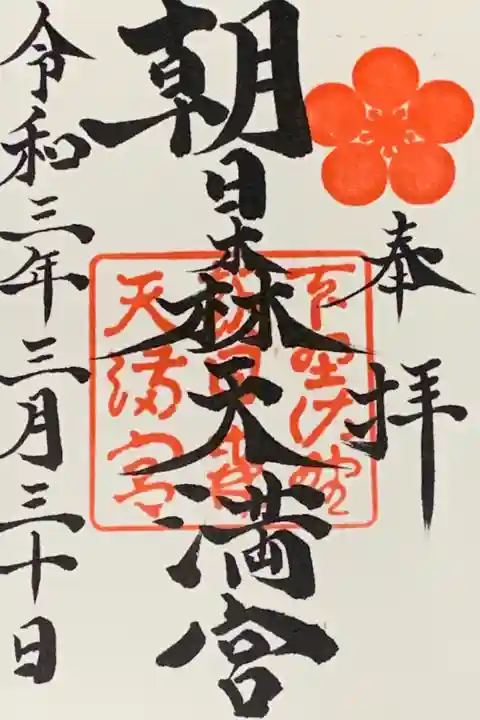 奉拝
朝日森天満宮
下野佐野
朝日森
天満宮
令和三年三月三十日